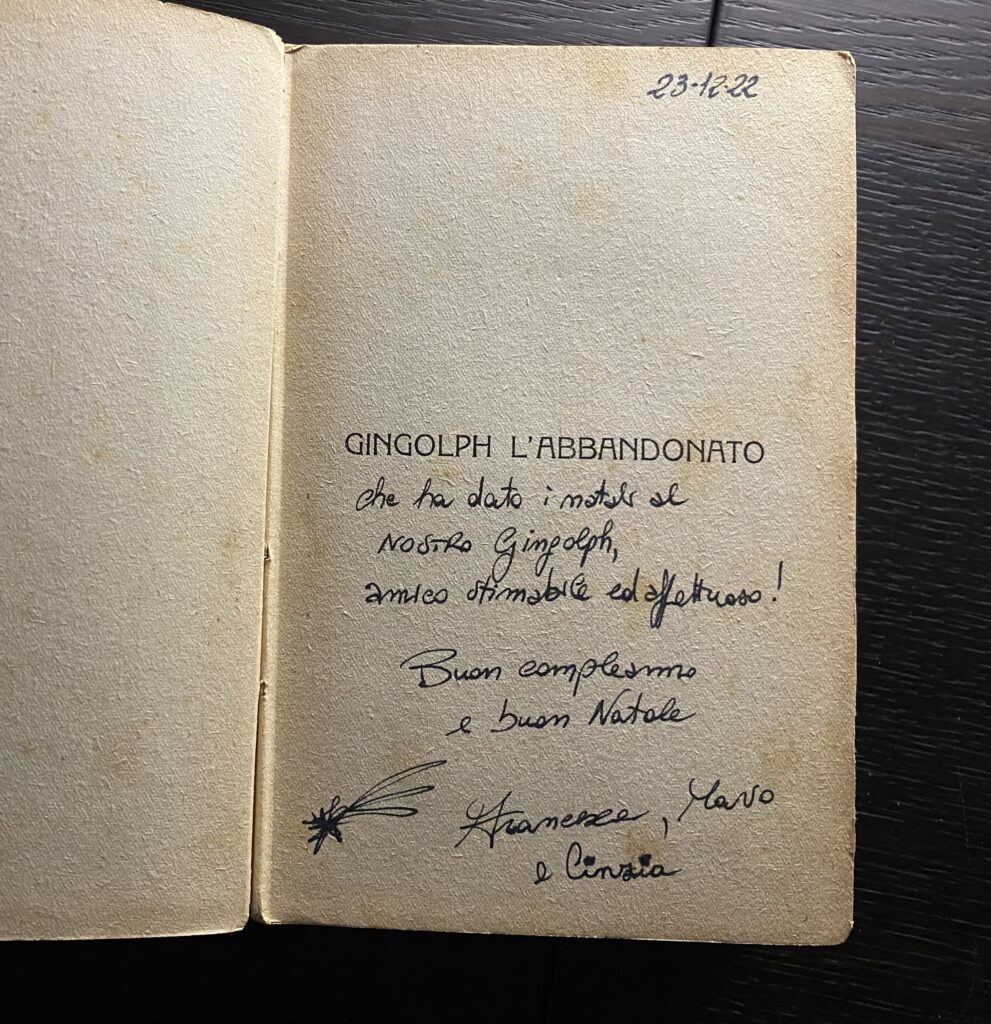 23-12-22
GINGOLPH L'ABBANDONATO
che ha dato i natali al
NOSTRO Gingolph,
amico stimabile ed affettuoso!
Buon compleanno
e buon Natale
Francesca,
e Cinzia